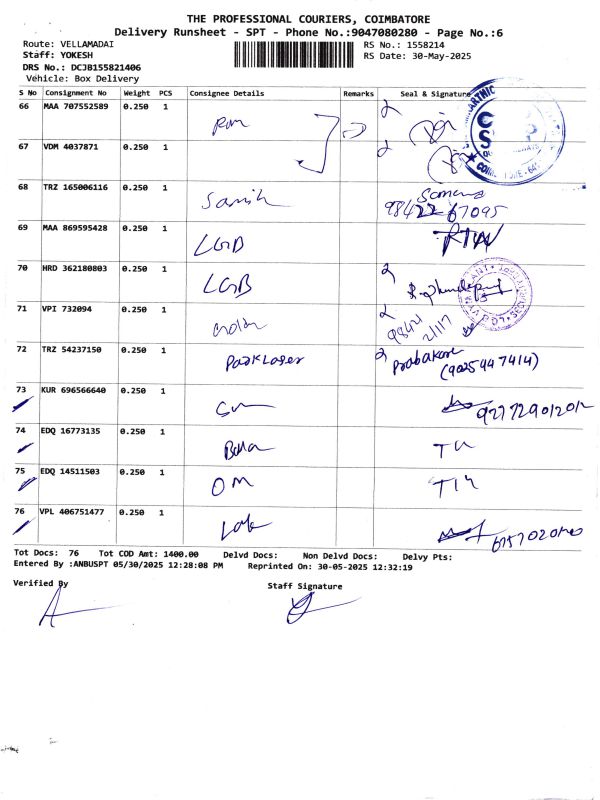 THE PROFESSIONAL COURIERS, COIMBATORE
Delivery Runsheet - SPT - Phone No.:9047080280 - Page No.:6
Route: VELLAMADAI
Staff: YOKESH
RS No.: 1558214
RS Date: 30-May-2025
DRS No.: DCJB155821406
Vehicle: Box Delivery
S No Consignment No Weight PCS Consignee Details Remarks Seal & Signature
66 MAA 707552589 0.250 1
67 VDM 4037871 0.250 1
68 TRZ 165006116 0.250 1
98422 67095
69 MAA 869595428 0.250 1 LGB
70 HRD 362180803 0.250 1 LGB
71 VPI 732094 0.250 1
72 TRZ 54237150 0.250 1 Park Laser Prabakar
(9025947414)
73 KUR 696566640 0.250 1
74 EDQ 16773135 0.250 1
75 EDQ 14511503 0.250 1 OM
76 VPL 406751477 0.250 1
Tot Docs: 76 Tot COD Amt: 1400.00 Delvd Docs: Non Delvd Docs: Delvy Pts:
Entered By :ANBUSPT 05/30/2025 12:28:08 PM Reprinted On: 30-05-2025 12:32:19
Verified By Staff Signature